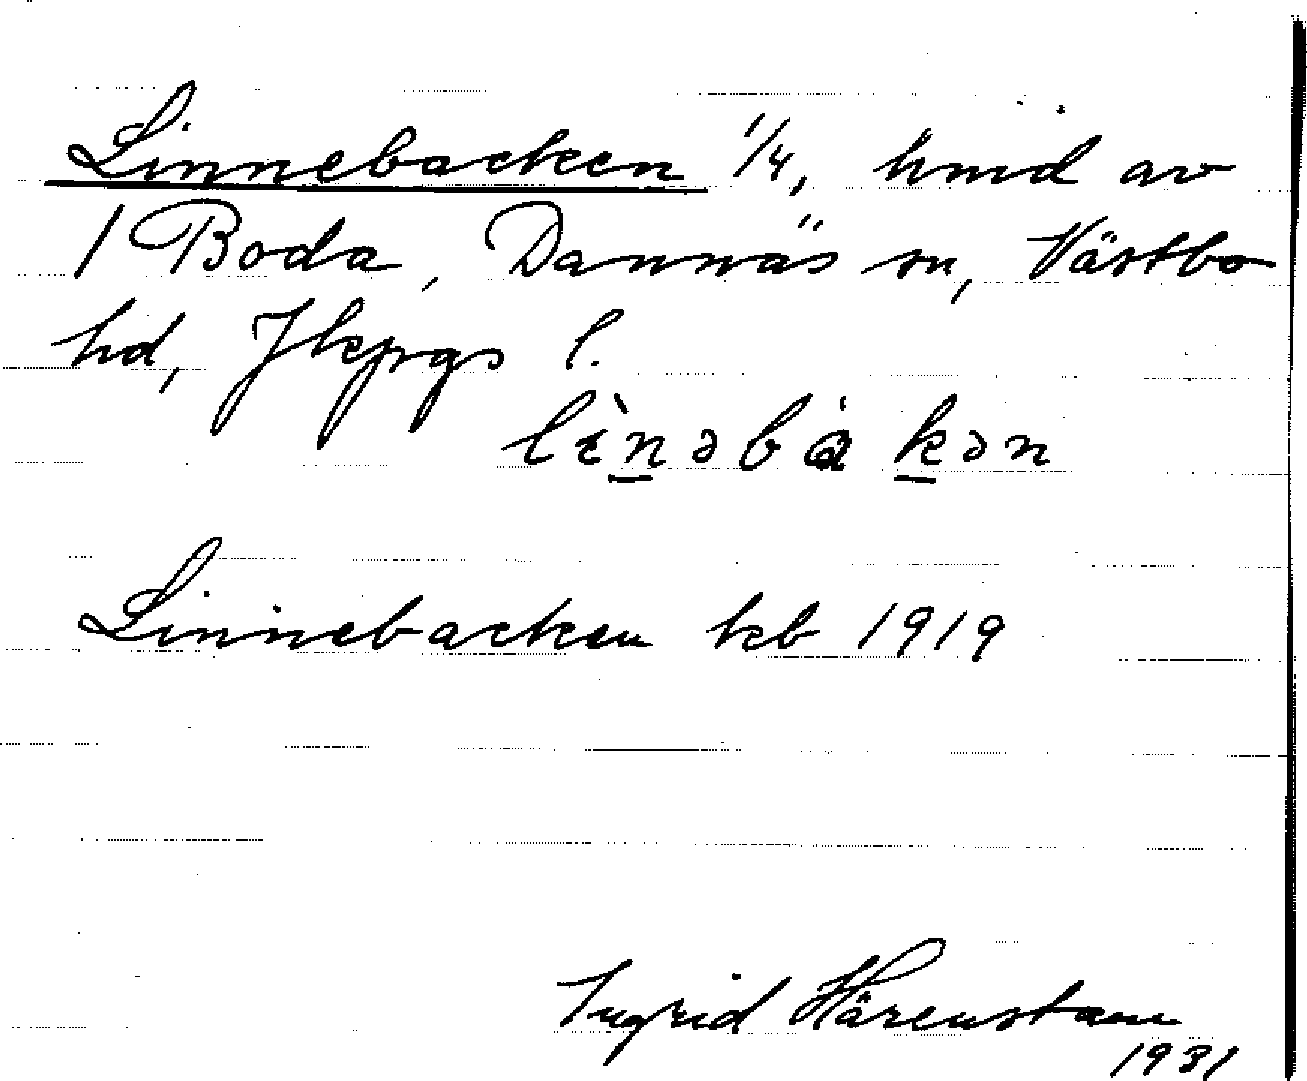 Linnebacken 1/4, hmd av
1 Boda, Dannäs sn, Västbo
hd, Jkpgs l.
lìnəbàkən
Linnebacken kb 1919
Ingrid Härenstam
1931